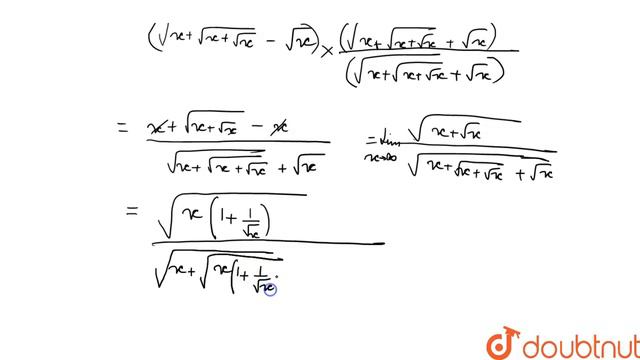 (√(x+√(x+√x)) - √x) × (√(x+√(x+√x)) + √x) / (√(x+√(x+√x)) + √x)
= (x + √(x+√x) - x) / (√(x+√(x+√x)) + √x) = lim x→∞ √(x+√x) / (√(x+√(x+√x)) + √x)
= √(x(1 + 1/√x)) / √(x+√(x(1 + 1/√x
doubtnut